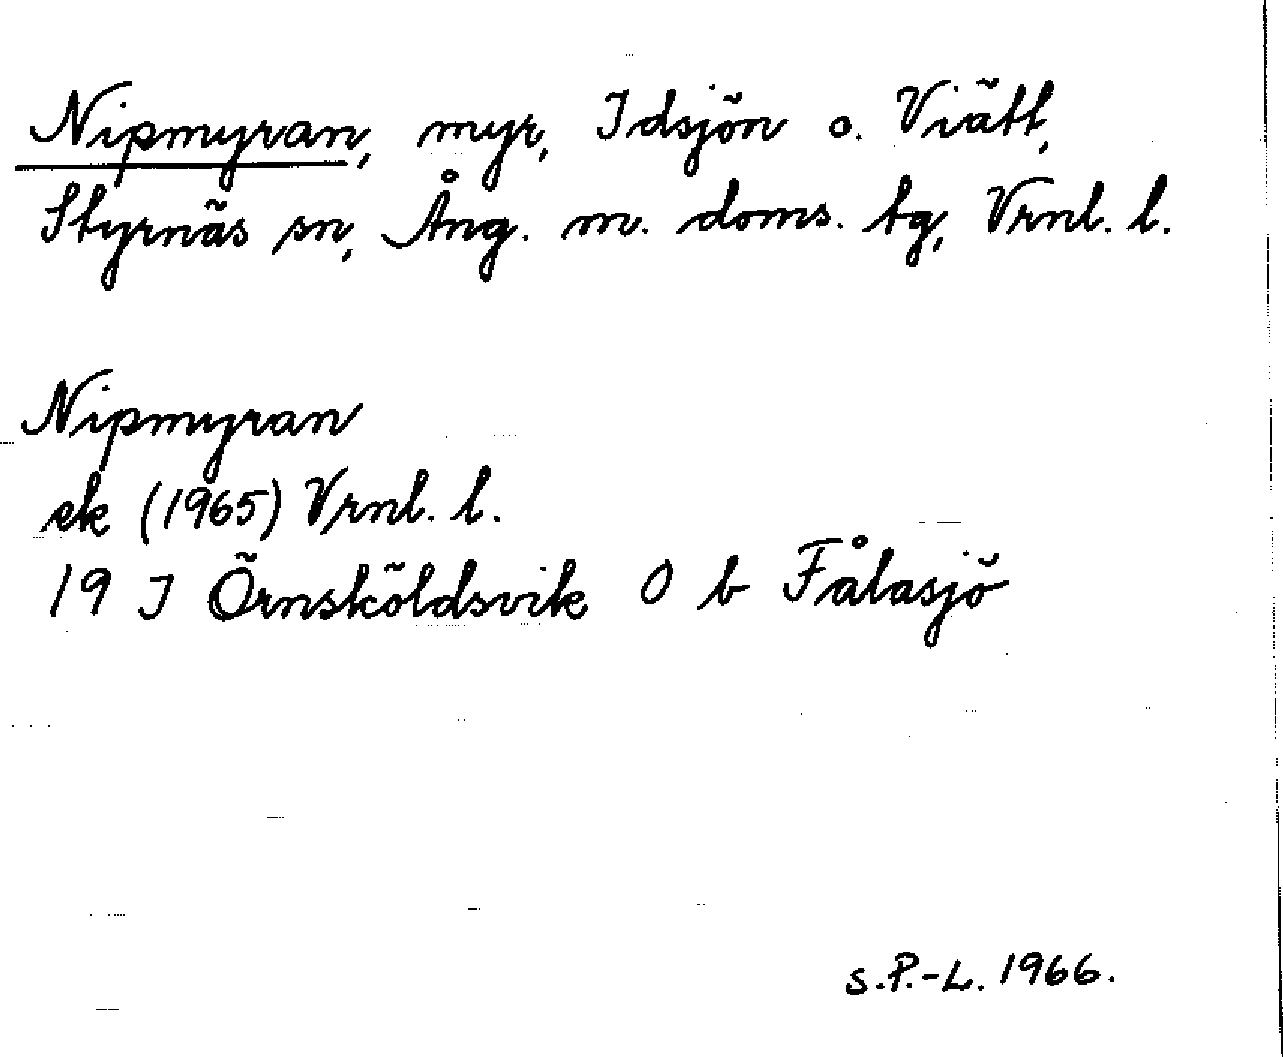 Nipmyran, myr, Idsjön o. Viätt,
Styrnäs sn, Ång. m. doms. tg, Vrnl. l.
Nipmyran
ek (1965) Vrnl. l.
19 I Örnsköldsvik O b Fålasjö
S.P.-L. 1966.